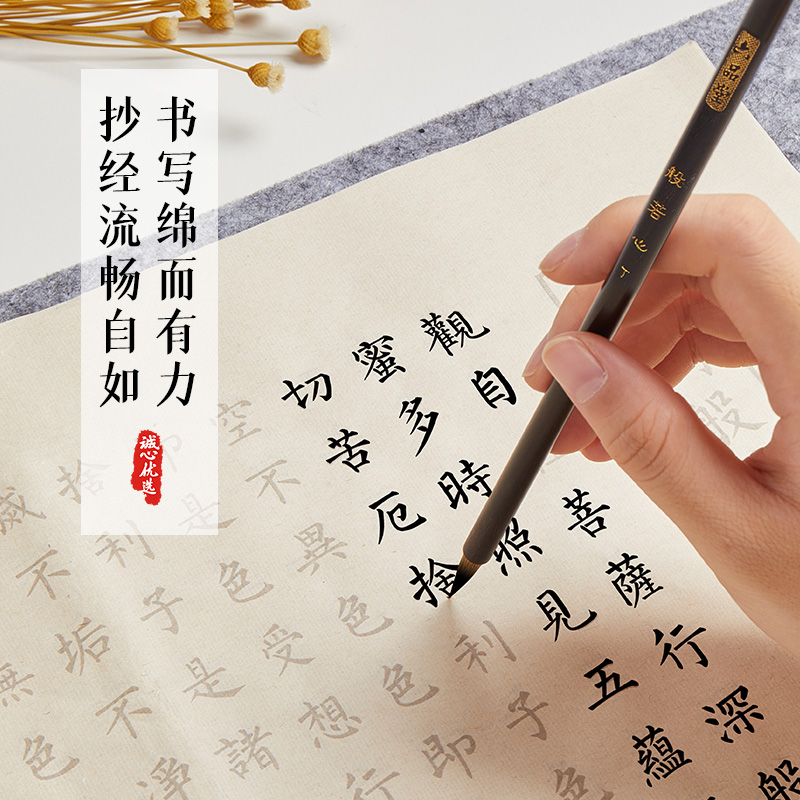 书写绵而有力
抄经流畅自如
诚心优选
般
觀自菩薩行深般
蜜多時照見五蘊
切苦厄捨利子色
空不異色色即
即是色受想行
捨利子是諸
滅不垢不淨
無色